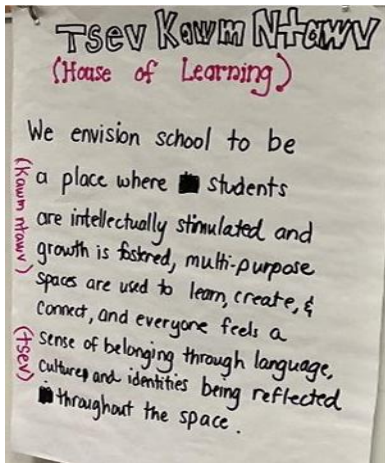 Tsev Kawm Ntawv
(House of Learning)
We envision school to be
a place where students
are intellectually stimulated and
growth is fostered, multi-purpose
spaces are used to learn, create, &
connect, and everyone feels a
sense of belonging through language,
culture, and identities being reflected
throughout the space.
(kawm ntawv)
(tsev)